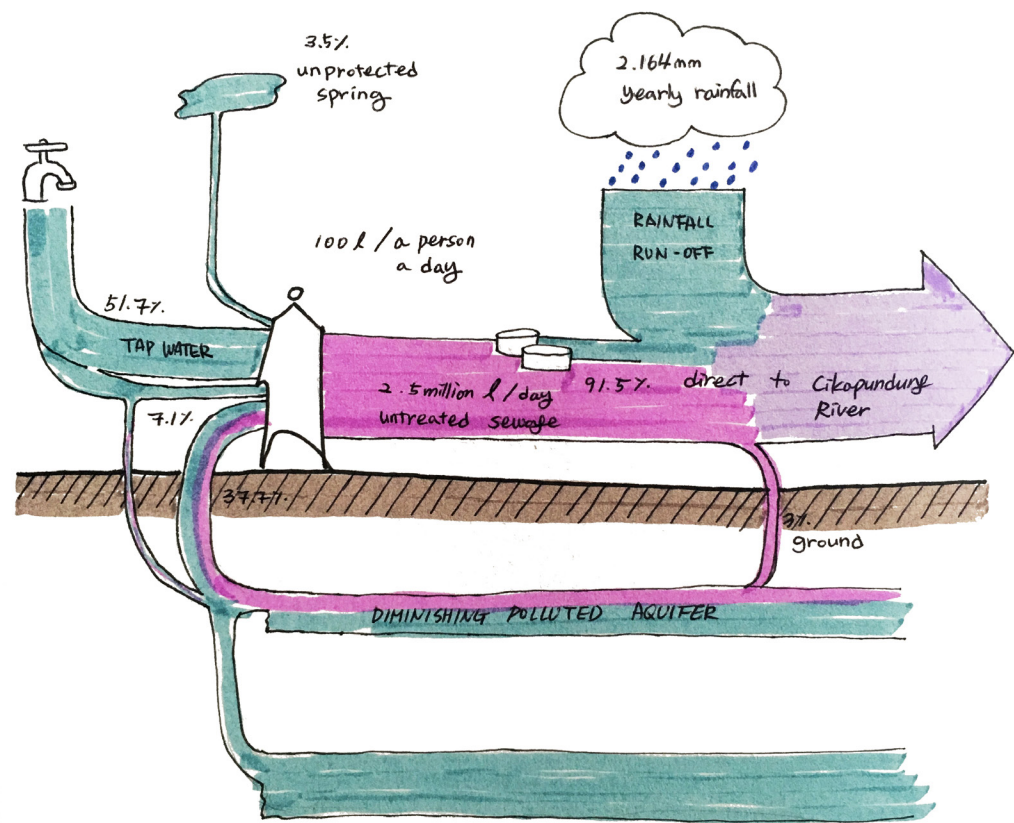 3.5%
unprotected
spring
2.164mm
yearly rainfall
100 l / a person
a day
RAINFALL
RUN-OFF
51.7%
TAP WATER
2.5 million l / day
untreated sewage
91.5% direct to Cikapundung
River
7.1%
37.7%
3%
ground
DIMINISHING POLLUTED AQUIFER